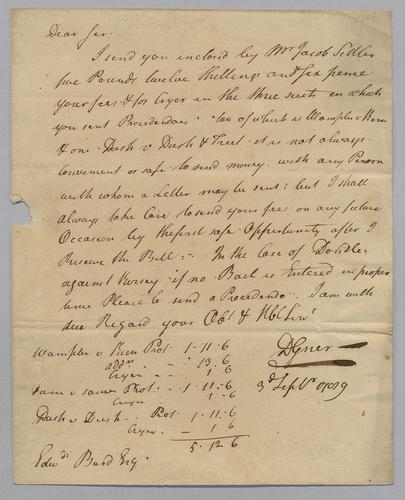 Dear Sir
I send you inclosed by Mr Jacob Sidler
five Pounds twelve shillings and six pence
your fees & for Cryer in the three suits in which
you sent Procedendoes. two of which is Wampler v Kern
& one Dush v Dush & Treet it is not always
Convenient or safe to send money with any Person
with whom a Letter may be sent: but I shall
always take Care to send your fees on any future
Occasion by the first safe Opportunity after I
Receive the Bill :- In the Case of
against Kersey if no Bail is Entered in proper
time Please to send a Procedendo :- I am with
due Regard your Obt & Hble Servt
Wampler v Kern Prot. 1-11-6
addn - - 13 6
Cryer - - 1 6
Same v same Prot. - 1-11-6
Cryer - 1-6
Dush v Dush . Prot 1-11-6
Cryer - 1 6
5. 12 6
3d Sept
Edwd Burd Esq.